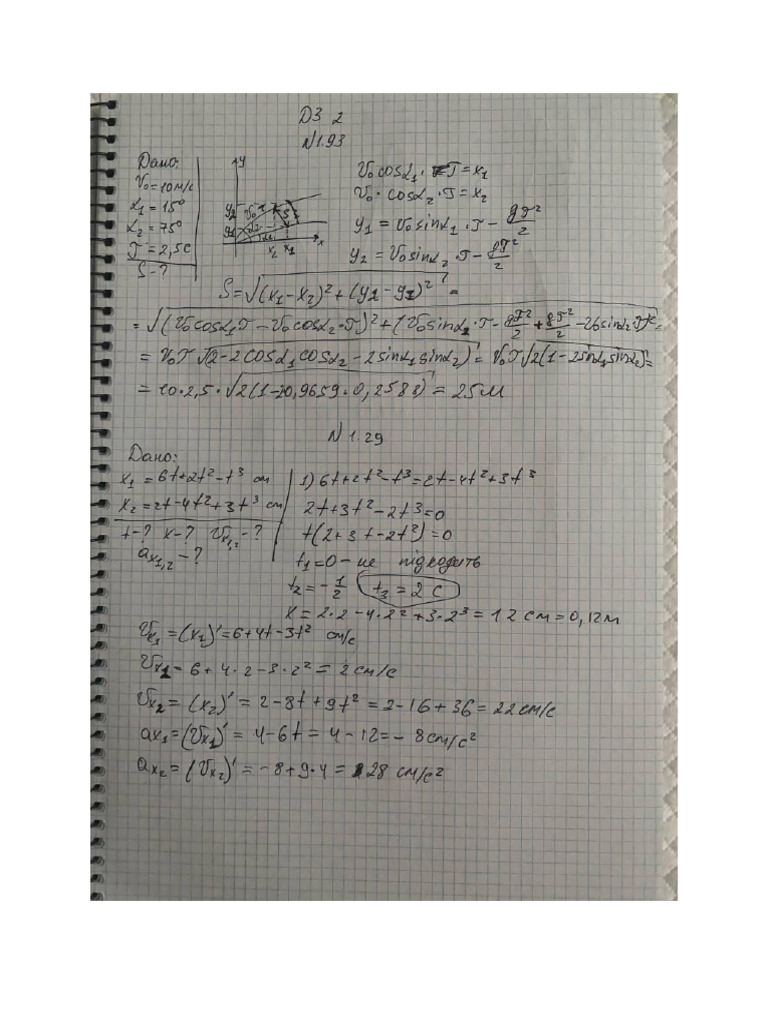 ДЗ 2
N1.93
Дано:
V₀ = 10 м/с
α₁ = 15°
α₂ = 75°
T = 2,5 с
S - ?
y
y₂ V₀
y₁
x₂ x₁ x
V₀ cosα₁ · T = x₁
V₀ · cosα₂ · T = x₂
y₁ = V₀ sinα₁ · T - gT²/2
y₂ = V₀ sinα₂ · T - gT²/2
S = √((x₁ - x₂)² + (y₂ - y₁)²) =
= √((V₀cosα₁T - V₀cosα₂·T)² + (V₀sinα₁·T - gT²/2 + gT²/2 - V₀sinα₂T)²) =
= V₀T √(2 - 2cosα₁cosα₂ - 2sinα₁sinα₂) = V₀T√2(1 - 2sinα₁sinα₂) =
= 10·2,5·√2(1-2·0,9659·0,2588) = 25м
N 1.29
Дано:
x₁ = 6t+2t²-t³ см
x₂ = 2t-4t²+3t³ см
t-? x-? Vx₁,₂-?
ax₁,₂-?
1) 6t+2t²-t³=2t-4t²+3t³
2t+3t²-2t³=0
t(2+3t-2t²)=0
t₁=0 - не підходить
t₂=-1/2 t₃=2 с
x = 2·2-4·2²+3·2³ = 12 см = 0,12м
Vx₁ = (x₂)' = 6+4t-3t² см/с
Vx₁ = 6+4·2-3·2² = 2 см/с
Vx₂ = (x₂)' = 2-8t+9t² = 2-16+36 = 22 см/с
ax₁ = (Vx₁)' = 4-6t = 4-12 = -8 см/с²
ax₂ = (Vx₂)' = -8+9·4 = 28 см/с²